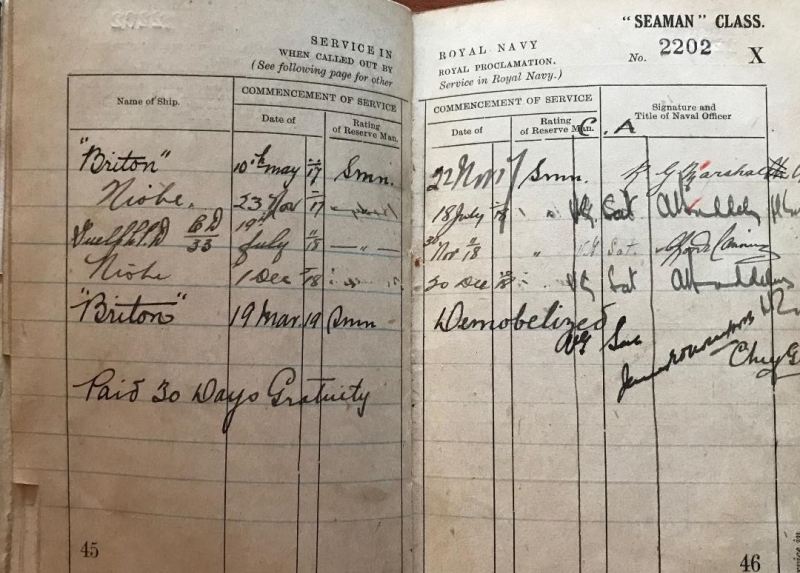 SERVICE IN
WHEN CALLED OUT BY
(See following page for other
Name of Ship.
COMMENCEMENT OF SERVICE
Date of
Rating of Reserve Man.
"Briton" 10th May 17 Smn.
Niobe. 23 Nov 17 "
19th July 18 "
Niobe 1 Dec 18 "
"Briton" 19 Mar 19 Smn
Paid 30 Days Gratuity
45
"SEAMAN" CLASS.
ROYAL NAVY
ROYAL PROCLAMATION.
Service in Royal Navy.)
No. 2202 X
COMMENCEMENT OF SERVICE
Date of
Rating of Reserve Man.
C. A
Signature and Title of Naval Officer
22 Nov 17 Smn.
18 July 18 " VG Sat
30 Nov 18 " VG Sat.
30 Dec 18 " VG Sat
Demobelized
VG
46